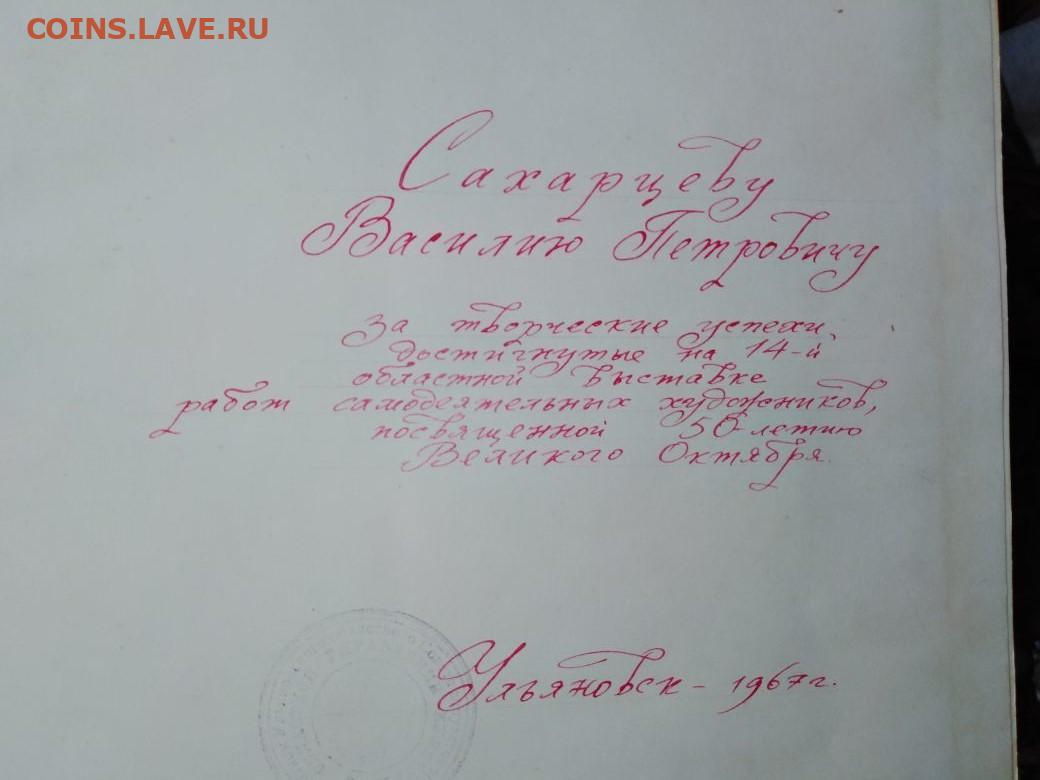 COINS.LAVE.RU
Сахарцеву
Василию Петровичу
за творческие успехи,
достигнутые на 14-й
областной выставке
работ самодеятельных художников,
посвященной 50-летию
Великого Октября.
Ульяновск - 1967 г.